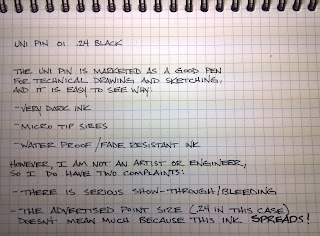 UNI PIN 01 .24 BLACK
THE UNI PIN IS MARKETED AS A GOOD PEN
FOR TECHNICAL DRAWING AND SKETCHING,
AND IT IS EASY TO SEE WHY:
-VERY DARK INK
-MICRO TIP SIZES
-WATER PROOF/FADE RESISTANT INK
HOWEVER, I AM NOT AN ARTIST OR ENGINEER,
SO I DO HAVE TWO COMPLAINTS:
-THERE IS SERIOUS SHOW-THROUGH/BLEEDING
-THE ADVERTISED POINT SIZE (.24 IN THIS CASE)
DOESN'T MEAN MUCH BECAUSE THIS INK SPREADS!